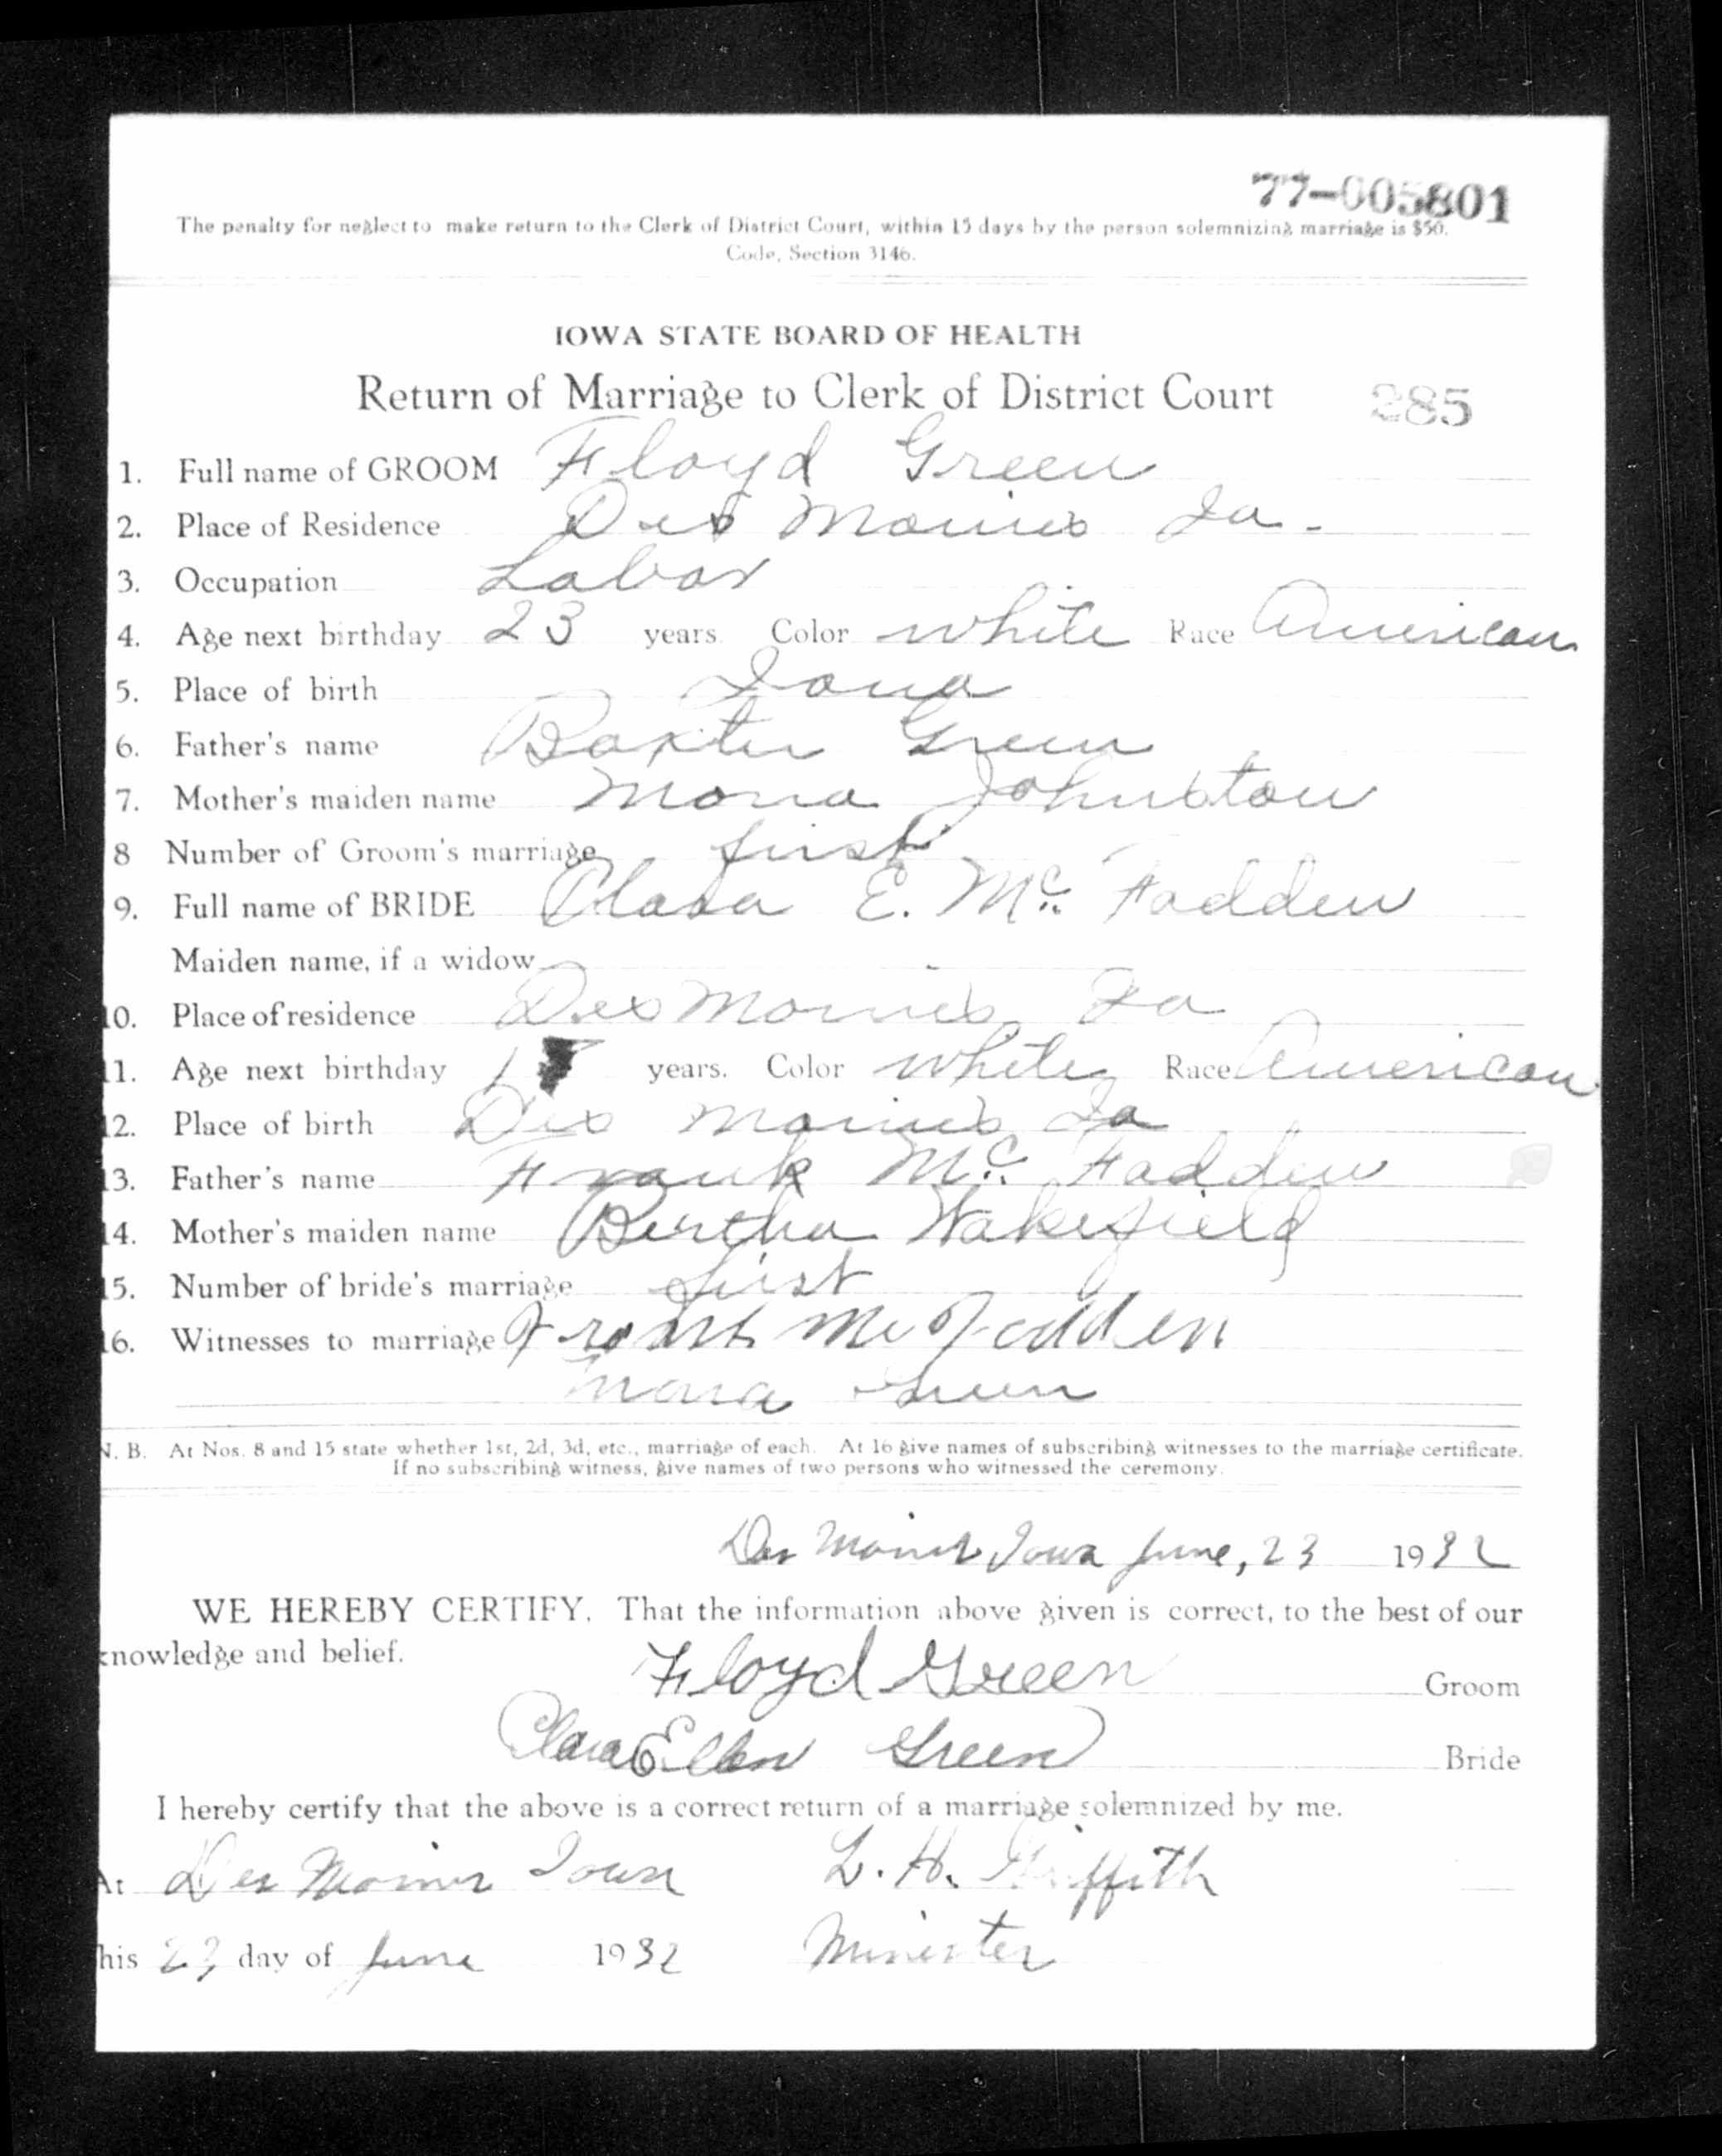 77-005801
The penalty for neglect to make return to the Clerk of District Court, within 15 days by the person solemnizing marriage is $50.
Code, Section 3146.
IOWA STATE BOARD OF HEALTH
Return of Marriage to Clerk of District Court 285
1. Full name of GROOM Floyd Green
2. Place of Residence Des Moines Ia.
3. Occupation Labor
4. Age next birthday 23 years. Color white Race American
5. Place of birth Iowa
6. Father's name Baxter Green
7. Mother's maiden name Mona Johnston
8 Number of Groom's marriage first
9. Full name of BRIDE Clara E. Mc Fadden
Maiden name, if a widow
10. Place of residence Des Moines Ia
11. Age next birthday years. Color white Race American
12. Place of birth Des Moines Ia
13. Father's name Frank Mc Fadden
14. Mother's maiden name Bertha Wakefield
15. Number of bride's marriage first
16. Witnesses to marriage Frank McFadden
Mona Green
N. B. At Nos. 8 and 15 state whether 1st, 2d, 3d, etc., marriage of each. At 16 give names of subscribing witnesses to the marriage certificate.
If no subscribing witness, give names of two persons who witnessed the ceremony.
Des Moines Iowa June, 23 1932
WE HEREBY CERTIFY, That the information above given is correct, to the best of our
knowledge and belief.
Floyd Green Groom
Clara Ellen Green Bride
I hereby certify that the above is a correct return of a marriage solemnized by me.
At Des Moines Iowa L. H. Griffith
his 23 day of June 1932 Minister